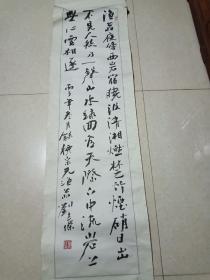 渔翁夜傍西岩宿晓汲清湘燃楚竹烟销日出
不见人欸乃一声山水绿回看天际下中流岩上
无心云相逐 丙子年 月录柳宗元渔翁 刘